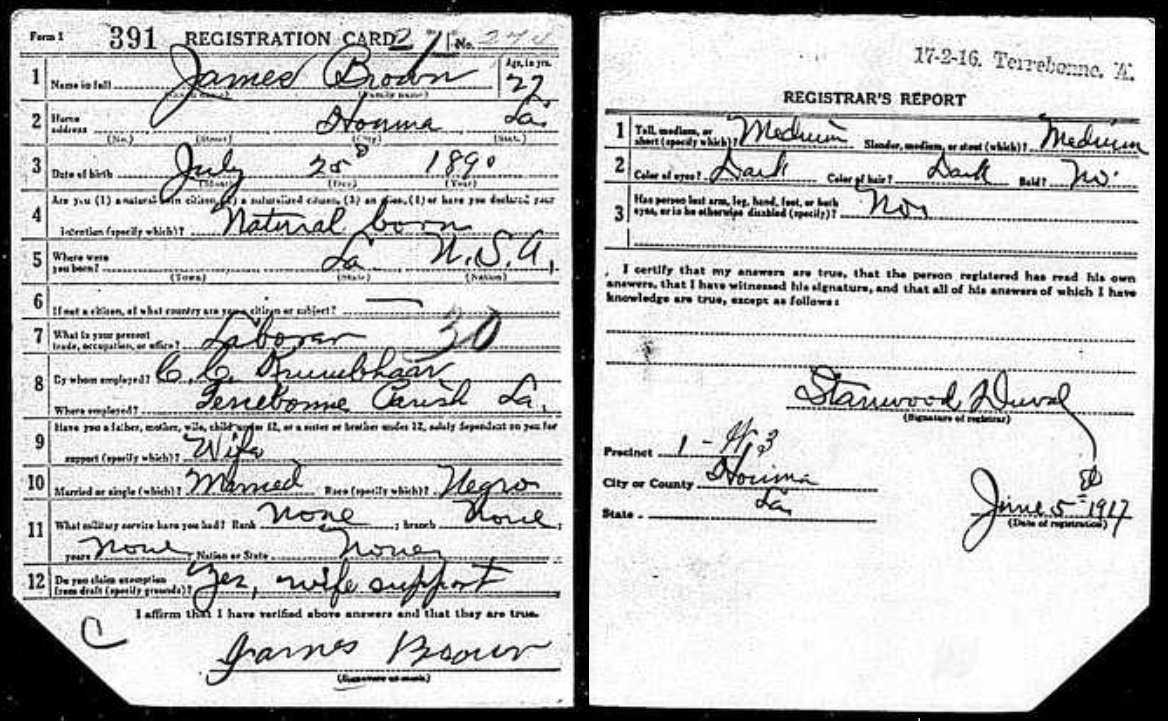 Form 1 391 REGISTRATION CARD 21 No. 274
1 Name in full James Brown Age, in yrs. 27
(Given name) (Family name)
2 Home address Houma La.
(No.) (Street) (City) (State)
3 Date of birth July 25 1890
(Month) (Day) (Year)
4 Are you (1) a natural-born citizen, (2) a naturalized citizen, (3) an alien, (4) or have you declared your
intention (specify which)? Natural born
5 Where were you born? La U.S.A.
(Town) (State) (Nation)
6 If not a citizen, of what country are you a citizen or subject?
7 What is your present trade, occupation, or office? Laborer 30
8 By whom employed? C. C. Krumbhaar
Where employed? Terrebonne Parish La.
9 Have you a father, mother, wife, child under 12, or a sister or brother under 12, solely dependent on you for
support (specify which)? Wife
10 Married or single (which)? Married Race (specify which)? Negro
11 What military service have you had? Rank none ; branch None ;
years none Nation or State None
12 Do you claim exemption from draft (specify grounds)? Yes, wife support
I affirm that I have verified above answers and that they are true.
C
James Brown
(Signature or mark)
17-2-16. Terrebonne. A.
REGISTRAR'S REPORT
1 Tall, medium, or short (specify which)? Medium Slender, medium, or stout (which)? Medium
2 Color of eyes? Dark Color of hair? Dark Bald? No
3 Has person lost arm, leg, hand, foot, or both eyes, or is he otherwise disabled (specify)? No
I certify that my answers are true, that the person registered has read his own
answers, that I have witnessed his signature, and that all of his answers of which I have
knowledge are true, except as follows:
Stanwood Duval
(Signature of registrar)
Precinct 1 - W. 3
City or County Houma
State La
June 5 1917
(Date of registration)